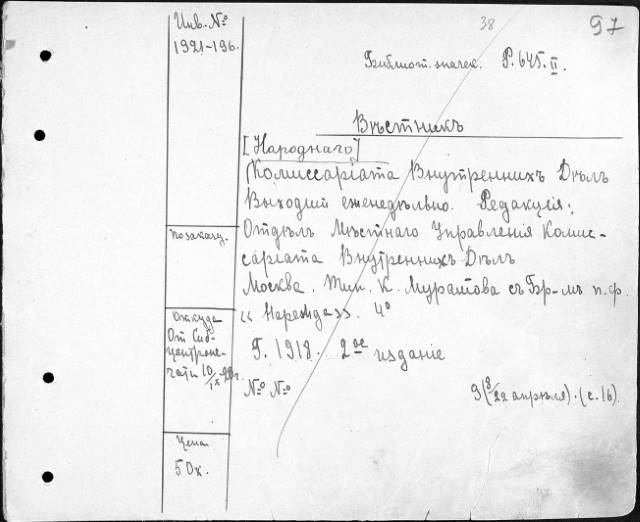 38
97
Инв. №
1921-196.
Библиот. значек. Р. 645. II.
Вѣстникъ
[Народнаго]
Комиссаріата Внутреннихъ Дѣлъ
Выходит еженедѣльно. Редакція:
Отдѣлъ Мѣстнаго Управленія Комис-
саріата Внутреннихъ Дѣлъ
Москва. Тип. К. Муратова съ Бр-мъ п. ф.
4°
Г. 1918. 2ое изданіе
№ № 9 (8/22 апрѣля). (с. 16)
По заказу.
Откуда
От
Цѣна
50 к.